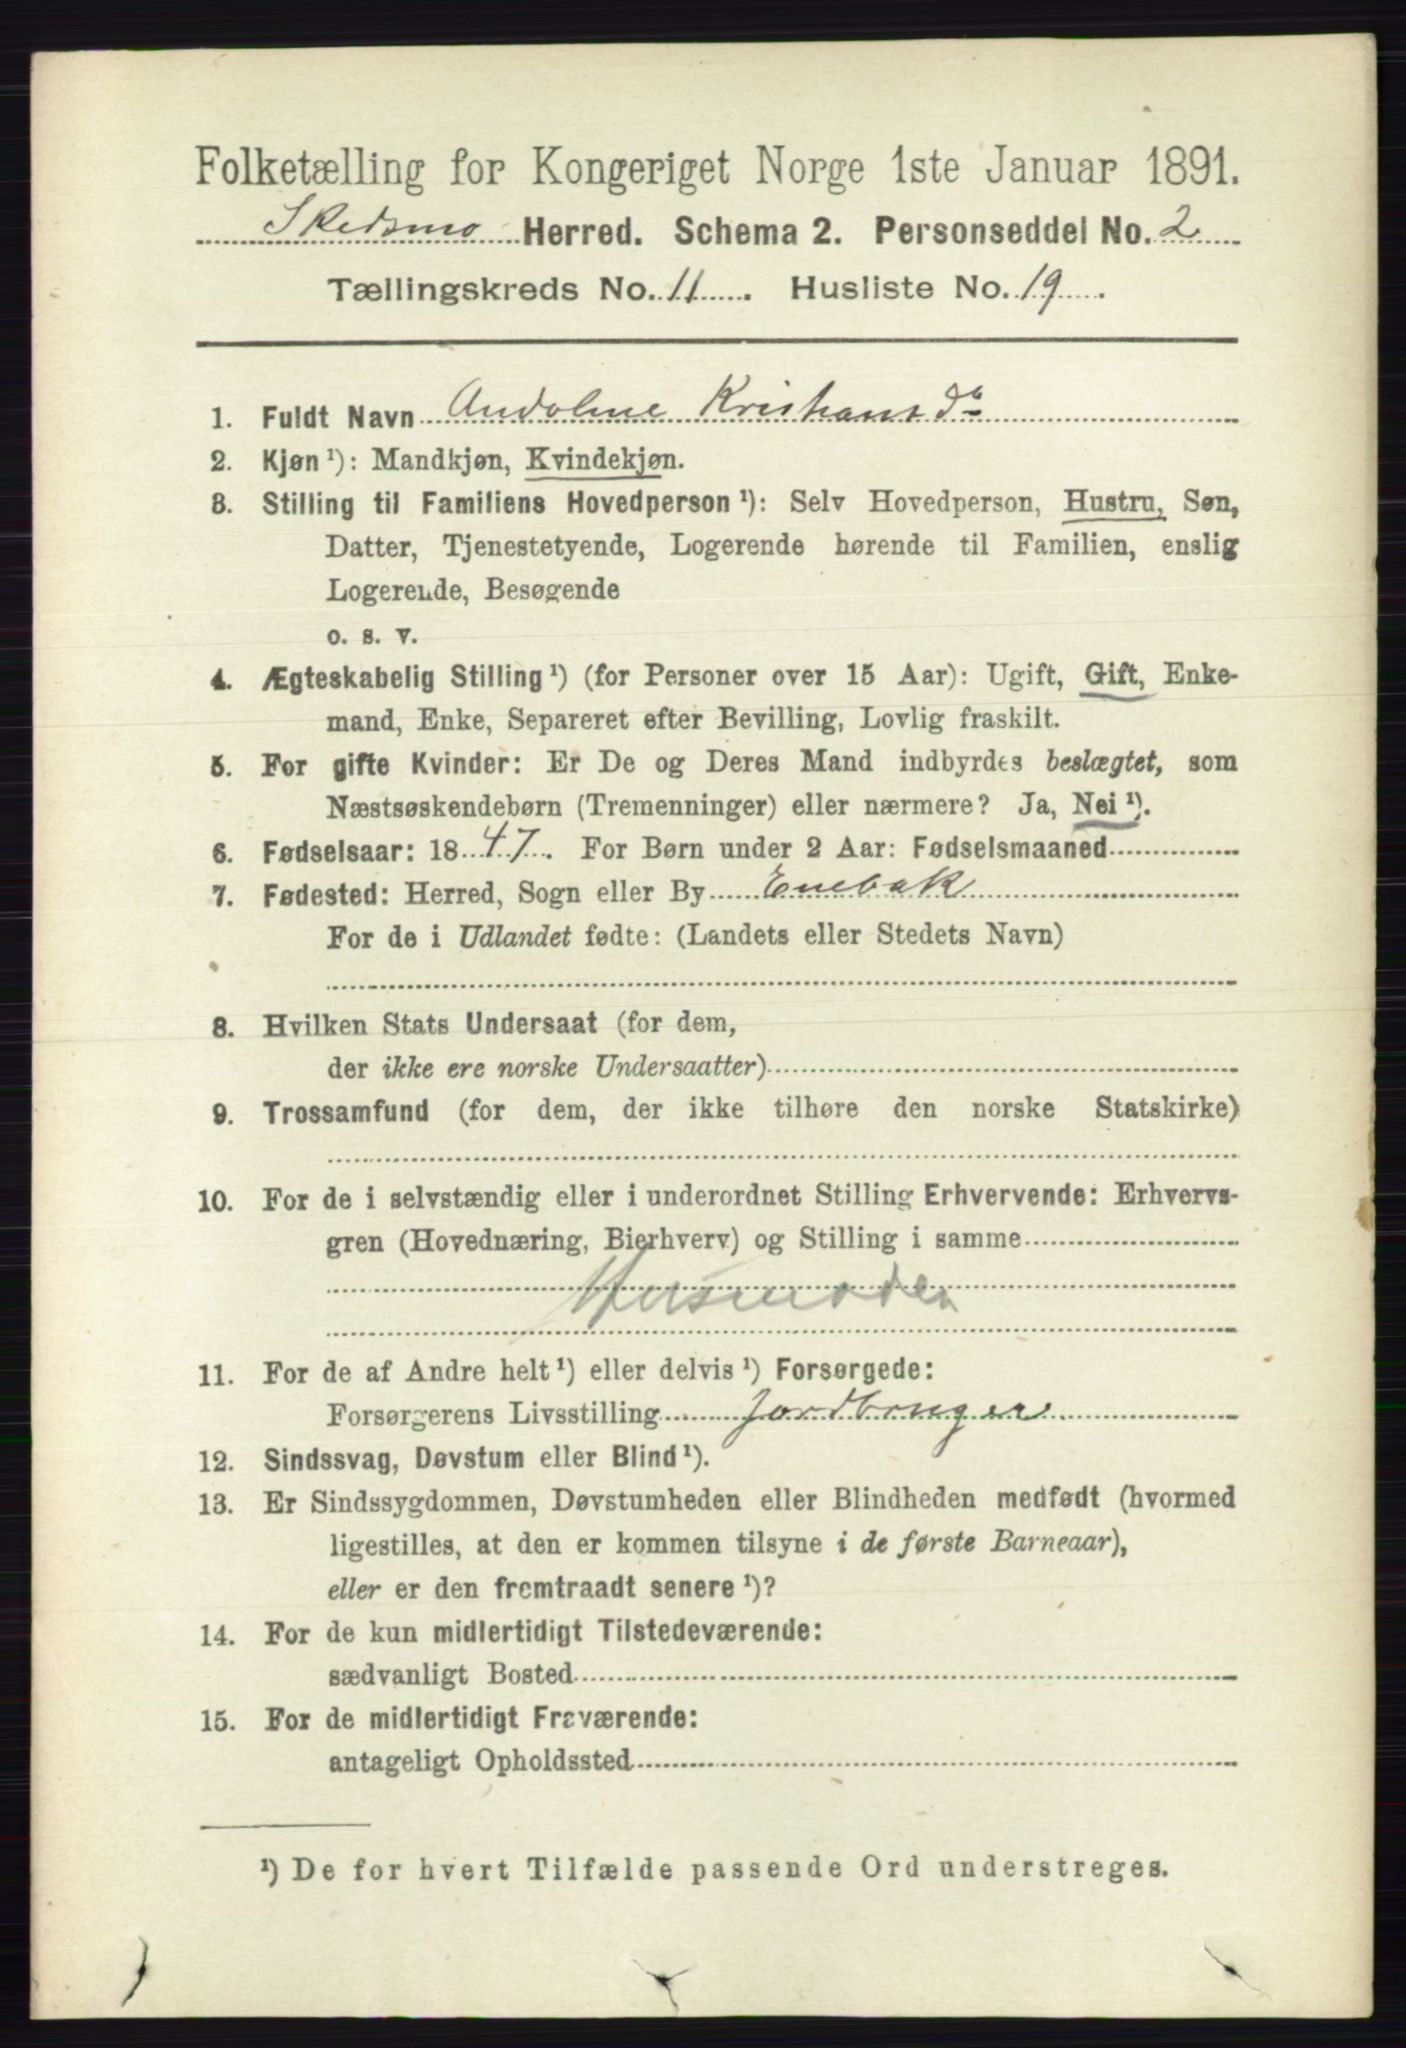 Folketælling for Kongeriget Norge 1ste Januar 1891.
Skedsmo Herred. Schema 2. Personseddel No. 2
Tællingskreds No. 11. Husliste No. 19.
1. Fuldt Navn Andoline Kristiansda
2. Kjøn ¹): Mandkjøn, Kvindekjøn.
3. Stilling til Familiens Hovedperson ¹): Selv Hovedperson, Hustru, Søn,
Datter, Tjenestetyende, Logerende hørende til Familien, enslig
Logerende, Besøgende
o. s. v.
4. Ægteskabelig Stilling ¹) (for Personer over 15 Aar): Ugift, Gift, Enke-
mand, Enke, Separeret efter Bevilling, Lovlig fraskilt.
5. For gifte Kvinder: Er De og Deres Mand indbyrdes beslægtet, som
Næstsøskendebørn (Tremenninger) eller nærmere? Ja, Nei ¹).
6. Fødselsaar: 1847. For Børn under 2 Aar: Fødselsmaaned
7. Fødested: Herred, Sogn eller By Enebak
For de i Udlandet fødte: (Landets eller Stedets Navn)
8. Hvilken Stats Undersaat (for dem,
der ikke ere norske Undersaatter)
9. Trossamfund (for dem, der ikke tilhøre den norske Statskirke)
10. For de i selvstændig eller i underordnet Stilling Erhvervende: Erhvervs-
gren (Hovednæring, Bierhverv) og Stilling i samme
Husmoder
11. For de af Andre helt ¹) eller delvis ¹) Forsørgede:
Forsørgerens Livsstilling Jordbruger
12. Sindssvag, Døvstum eller Blind ¹).
13. Er Sindssygdommen, Døvstumheden eller Blindheden medfødt (hvormed
ligestilles, at den er kommen tilsyne i de første Barneaar),
eller er den fremtraadt senere ¹)?
14. For de kun midlertidigt Tilstedeværende:
sædvanligt Bosted
15. For de midlertidigt Fraværende:
antageligt Opholdssted
¹) De for hvert Tilfælde passende Ord understreges.